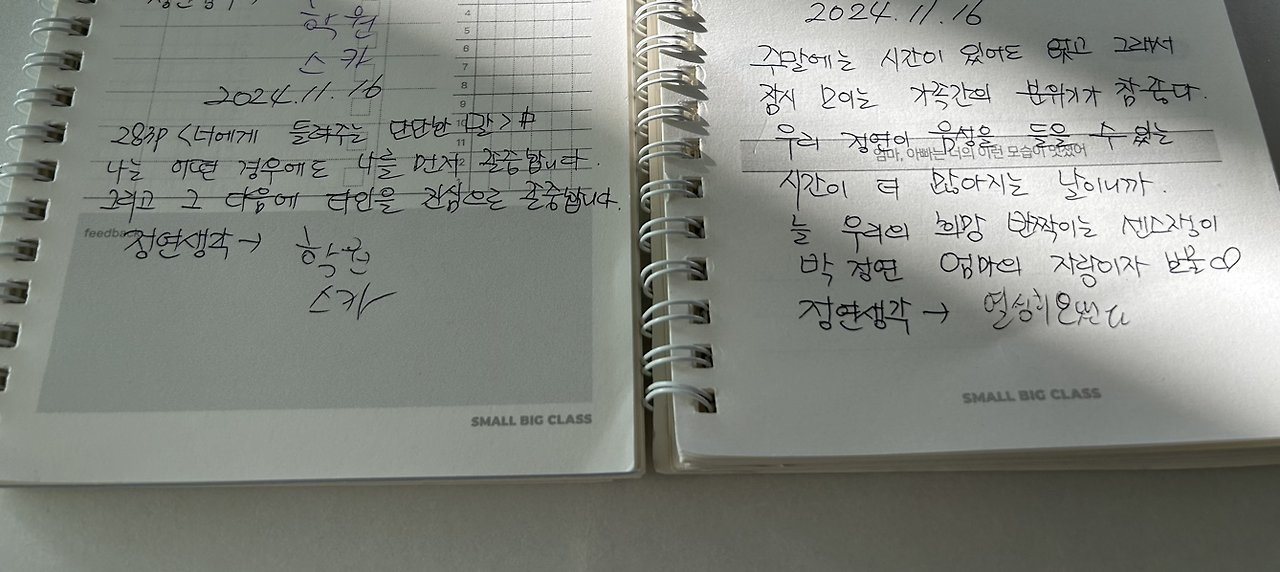 정연생각
학원
스카
4
5
6
7
8
9
10
11
12
2024.11.16
283P <너에게 들려주는 단단한 말> 中
나는 어떤 경우에도 나를 먼저 존중합니다.
그리고 그 다음에 타인을 진심으로 존중합니다.
feedback
정연생각→ 학원
스카
SMALL BIG CLASS
2024.11.16
주말에는 시간이 있어도 없고 그래서
잠시 모이는 가족간의 분위기가 참 좋다.
우리 정연이 음성을 들을 수 있는
엄마, 아빠는 너의 이런 모습이 멋졌어
시간이 더 많아지는 날이니까.
늘 우리의 희망 반짝이는 센스쟁이
박정연 엄마의 자랑이자 보물♡
정연생각 → 열심히
SMALL BIG CLASS